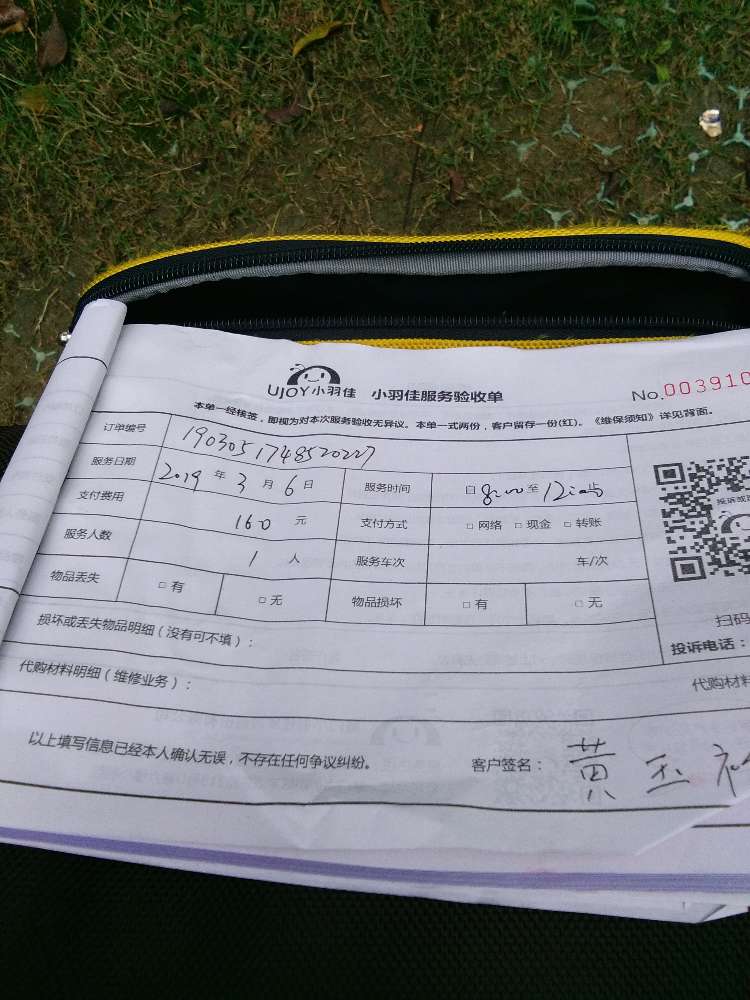 UJOY小羽佳 小羽佳服务验收单 No.003910
本单一经核签，即视为对本次服务验收无异议。本单一式两份，客户留存一份(红)。《维保须知》详见背面。
订单编号 1903051748520227
服务日期 2019 年 3 月 6 日 服务时间 自 8:00 至 12:00 止
支付费用 160 元 支付方式 □ 网络 □ 现金 □ 转账
服务人数 1 人 服务车次 车/次
物品丢失 □ 有 □ 无 物品损坏 □ 有 □ 无
投诉或
扫码
损坏或丢失物品明细（没有可不填）： 投诉电话：
代购材料明细（维修业务）： 代购材料
以上填写信息已经本人确认无误，不存在任何争议纠纷。 客户签名： 黄玉